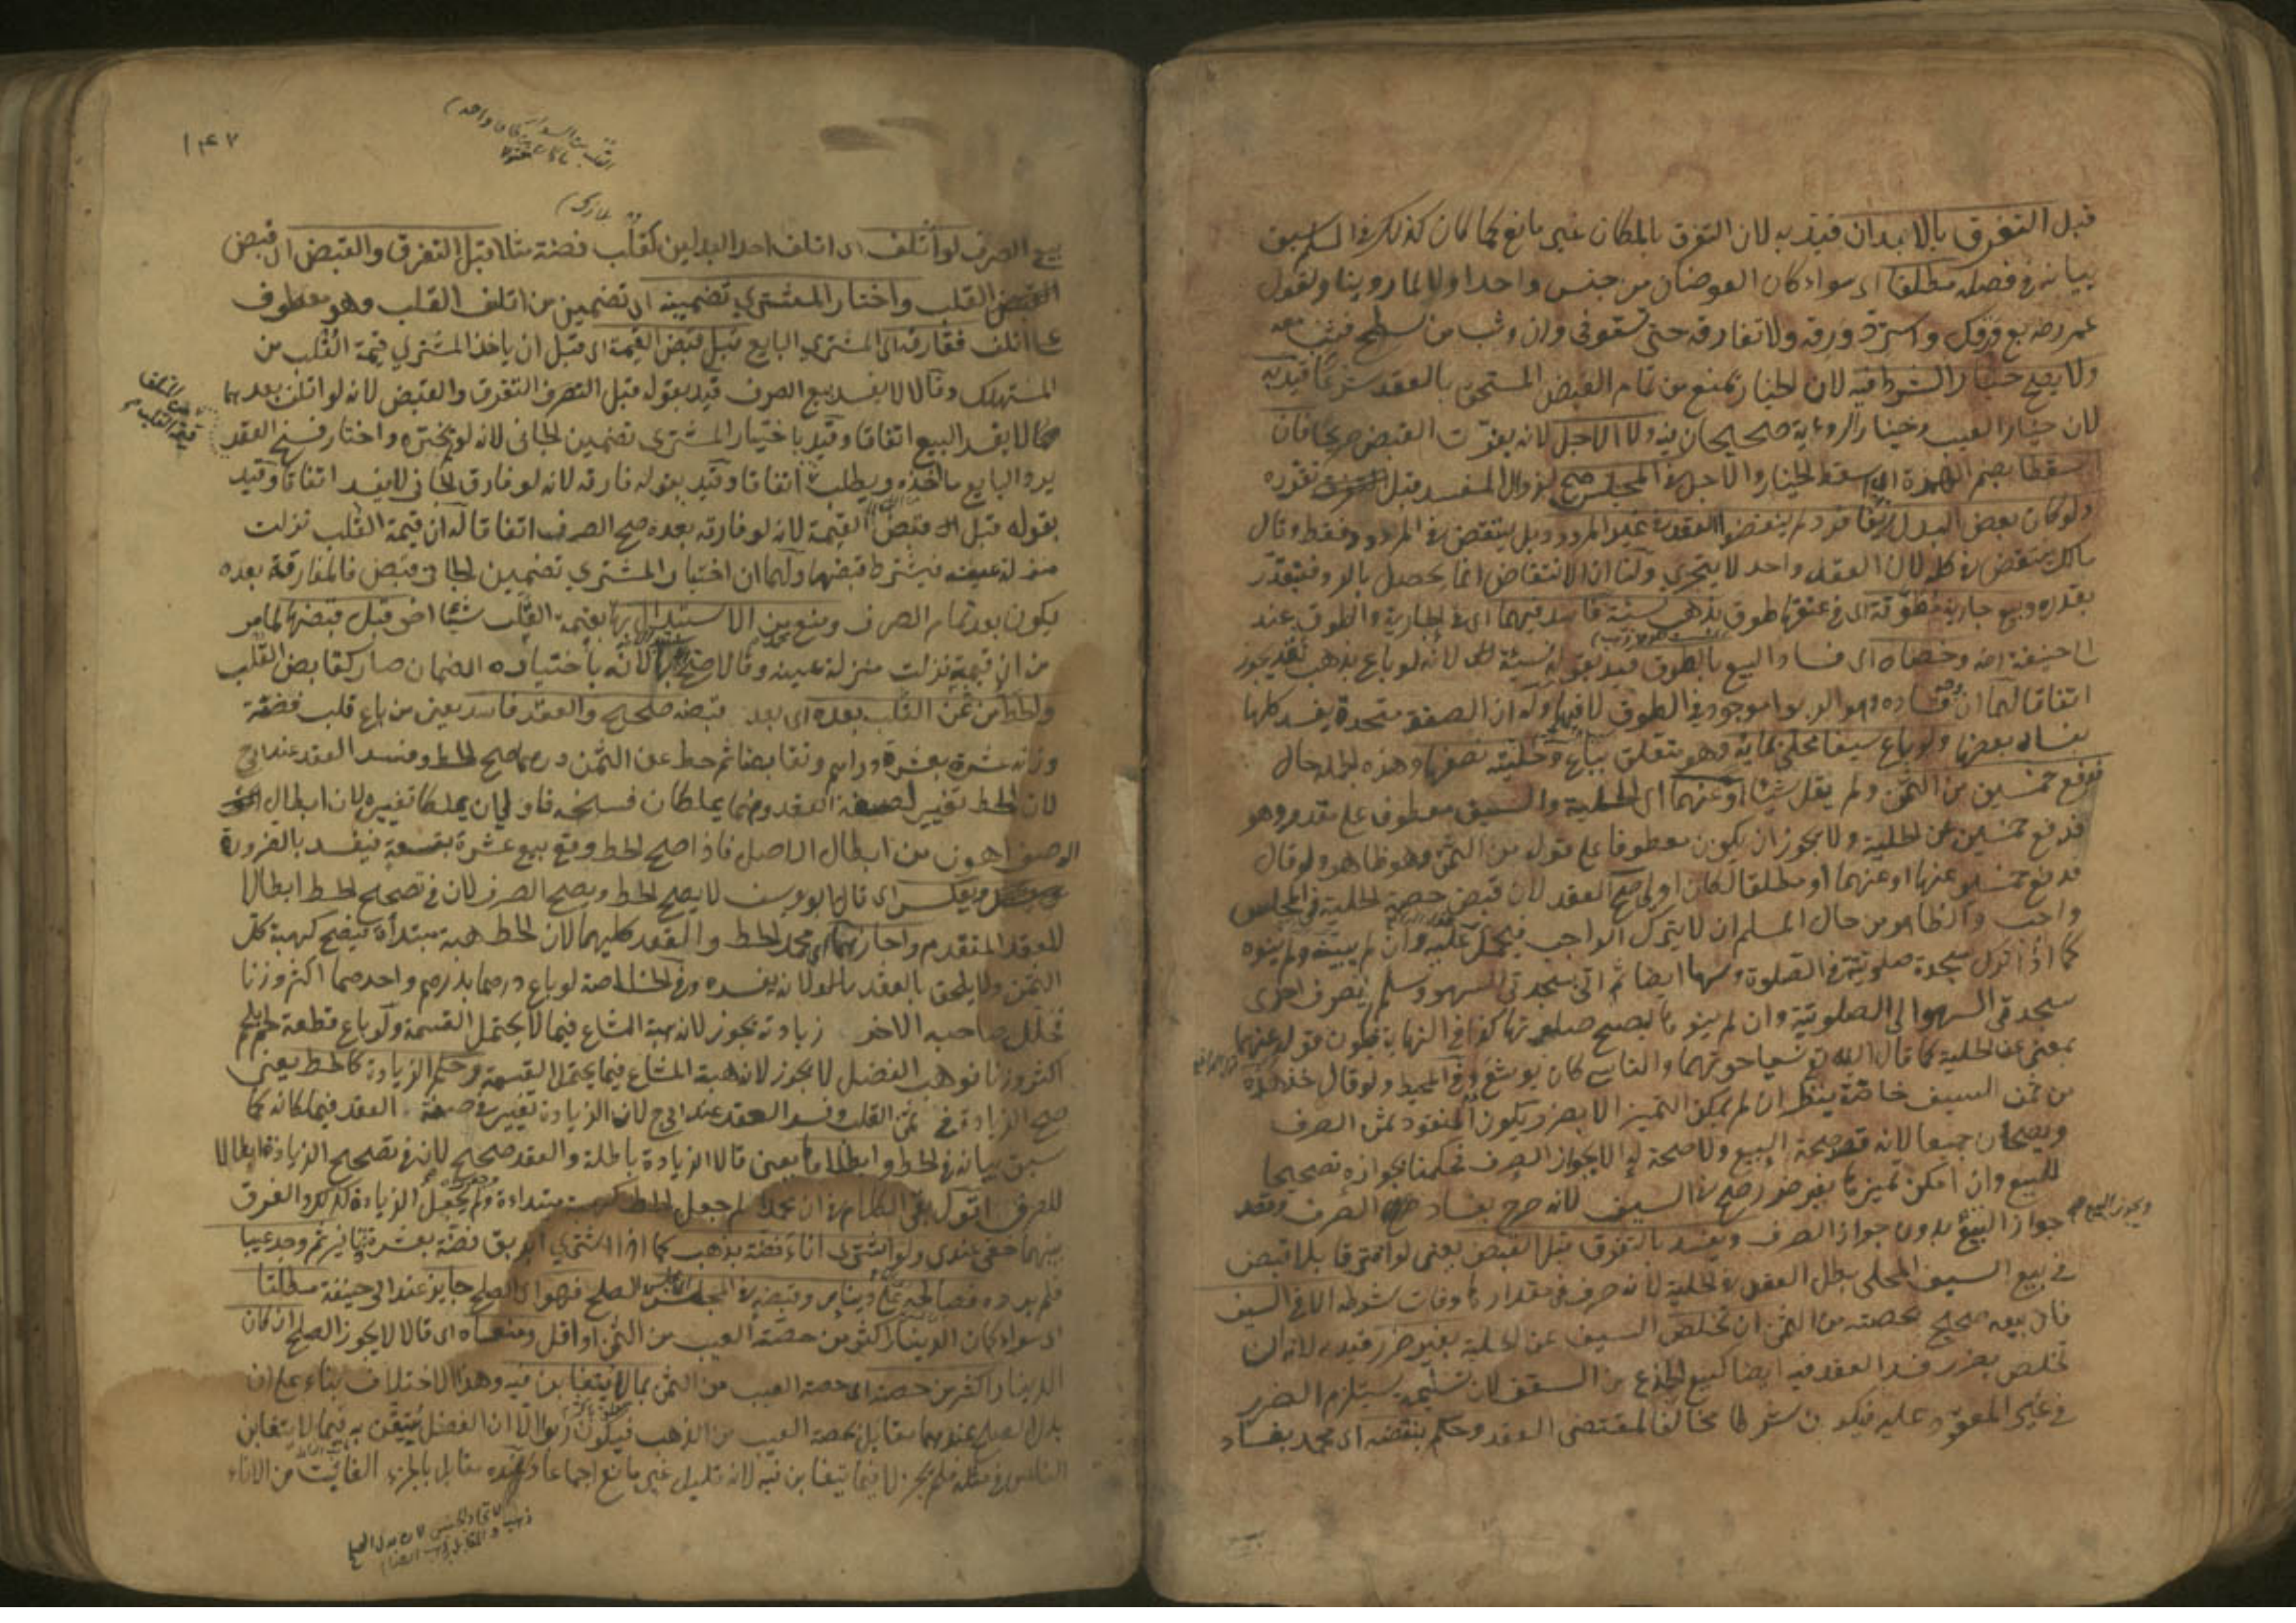 قبل التفرق بالابدان قيد به لان التفرق بالمكان غير مانع كما كان كذلك في السلم سبق
بيانه في فصله مطلقا اي سواء كان العوضان من جنس واحد او لا لما روينا ولقول
عمر رضه مع فروك واسترق ورقه ولا تفارقه حتى تستوفي وان وثب من سطح فثب معه
ولا يصح خيار الشرط فيه لان الخيار يمنع من تمام القبض المستحق بالعقد شرعا قيد به
لان خيار العيب وخيار الروءية صحيحان فيه ولا الاجل لانه يفوت القبض صريحا فان
اسقطا بضم الهمزة اي اسقط الخيار والاجل في المجلس صح لزوال المفسد قبل تقرره
ولو كان بعض البدل زيفا فرد لم ينقض العقد في غير المردود بل ينتقض في المردود فقط وقال
مالك ينتقض في كله لان العقد واحد لا يتجزي ولنا ان الانتقاض انما يحصل بالرد فيتقدر
بقدره وبيع جارية مطوقة اي في عنقها طوق بذهب نسيئة فاسد فيهما اي في الجارية والطوق عند
ابي حنيفة رضه وخصاه اي فساد البيع بالطوق قيد بقوله نسيئة لانه لو باع بذهب نقد يجوز
اتفاقا لهما ان فساده وهو الربوا موجود في الطوق لا فيها وله ان الصفقة متحدة يفسد كلها
بفساد بعضها ولو باع سيفا محلى بمائة وهو متعلق بباع وحلية نصفها وهذه الجملة حال
فدفع خمسين من الثمن ولم يقل شيئا او عنهما اي الحلية والسيف معطوف على مقدر وهو
فدفع خمسين عن الحلية ولا يجوز ان يكون معطوفا على قوله من الثمن وهو ظاهر ولو قال
فدفع خمسين عنها او عنهما او مطلقا لكان اولى صح العقد لان قبض حصة الحلية في المجلس
واجب والظاهر من حال المسلم ان لا يترك الواجب فيحمل عليه وان لم يبينه ولم ينوه
كما اذا ترك سجدة صلوتية في الصلوة وسها ايضا ثم اتى بسجدتي السهو وسلم يصرف احدى
سجدتي السهو الى الصلوتية وان لم ينو بالصح صلوتها كذا في النهاية فيكون قوله عنهما
بمعنى عن الحلية كما قال الله تع نسيا حوتهما والناسي كان يوشع وفي المحيط ولو قال خذ هذه
من ثمن السيف خاصة ينظر ان لم يمكن التمييز الا بضرر يكون المنقود ثمن الصرف
ويصحان جميعا لانه قصد صحة البيع ولا صحة له الا بجواز الصرف فحكمنا بجوازه تصحيحا
للبيع وان امكن تميزها بغير ضرر صح في السيف لانه صرح بفساد الصرف وقصد
جواز البيع بدون جواز الصرف ويفسد بالتفرق قبل القبض يعني لو افترقا بلا قبض
في بيع السيف المحلى بطل العقد في الحلية لانه صرف في مقدارها وفات شرطه لا في السيف
فان بيعه صحيح بحصته من الثمن ان تخلص السيف عن الحلية بغير ضرر قيد به لانه ان
تخلص بضرر فسد العقد فيه ايضا كبيع الجذع من السقف لان تسليمه يستلزم الضرر
في غير المعقود عليه فيكون شرطا مخالفا لمقتضى العقد وحكم بنقضه اي محمد بفساد
١٤٢
بيع الصرف لو اتلف اي اتلف احد البدلين كقلب فضة مثلا قبل التفرق والقبض اي قبض
القلب واختار المشتري تضمينه اي تضمين من اتلف القلب وهو معطوف
على اتلف ففارقه اي المشتري البايع قبل قبض القيمة اي قبل ان ياخذ المشتري قيمة القلب من
المستهلك وقالا لا يفسد بيع الصرف قيد بقوله قبل التفرق والقبض لانه لو اتلف بعدهما
لا يفسد البيع اتفاقا وقيد باختيار المشتري تضمين الجاني لانه لو لم يختره واختار فسخ العقد
يرد البايع ما اخذه ويطلب اتفاقا وقيد بقوله فارقه لانه لو فارق الجاني لا يفسد اتفاقا وقيد
بقوله قبل قبض القيمة لانه لو فارقه بعده صح الصرف اتفاقا له ان قيمة القلب نزلت
منزلة عينه فيشترط قبضها ولهما ان اختيار المشتري تضمين الجاني قبض فالمفارقة بعده
يكون بعد تمام الصرف ومنع من الاستبدال بها بقيمة القلب شيئا اخر قبل قبضها لما مر
من ان قيمته نزلت منزلة عينه وقالا صح لانه باختياره الضمان صار كقابض القلب
والحط من ثمن القلب بعده اي بعد قبضه صحيح والعقد فاسد يعني من باع قلب فضة
وزنه عشرة بعشرة دراهم وتقابضا ثم حط عن الثمن درهما صح الحط وفسد العقد عند ابي ح
لان الحط تغيير لصفة العقد وهما يملكان فسخه فاولى ان يملكا تغييره لان ابطال
الوصف اهون من ابطال الاصل فاذا صح الحط وقع بيع عشرة بتسعة فيفسد بالضرورة
ويعكس اي قال ابو يوسف لا يصح الحط ويصح الصرف لان في تصحيح الحط ابطالا
للعقد المتقدم واجازهما اي محمد الحط والعقد كليهما لان الحط هبة مبتدأة فيصح كهبة كل
الثمن ولا يلحق بالعقد لانه يفسده وفي الخلاصة لو باع درهما بدرهم واحدهما اكثر وزنا
فحلل صاحبه الاخر زيادته يجوز لانه هبة المشاع فيما لا يحتمل القسمة ولو باع قطعة لحم بلحم
اكثر وزنا فوهب الفضل لا يجوز لانه هبة المشاع فيما يحتمل القسمة وحكم الزيادة كالحط يعني
صح الزيادة في ثمن القلب وفسد العقد عند ابي ح لان الزيادة تغيير في صفة العقد فيملكانه كما
سبق بيانه في الحط وابطلاها يعني قالا الزيادة باطلة والعقد صحيح لان في تصحيح الزيادة ابطالا
للصرف اقول بقي الكلام في ان محمدا لم جعل الحط كهبة مبتداءة ولم يجعل الزيادة كذلك والفرق
بينهما خفي عندي ولو اشترى اناء فضة بذهب كما اذا اشترى ابريق فضة بعشرة دنانير ثم وجد عيبا
فلم يرده فصالحه على دينار وقبضه في المجلس الصلح فهو اي الصلح جايز عند ابي حنيفة مطلقا
اي سواء كان الدينار اكثر من حصة العيب من الثمن او اقل ومنعاه اي قالا لا يجوز الصلح ان كان
الدينار اكثر من حصته اي حصة العيب من الثمن بما لا يتغابن فيه وهذا الاختلاف بناء على ان
بدل الصلح عندهما مقابل بحصة العيب من الذهب فيكون ربوا الا ان الفضل يتيقن به فيما لا يتغابن
الناس في مثله فلم يجز لا فيما يتغابن فيه لانه قليل غير مانع اجماعا وعنده مقابل بالجزء الفائت من الاناء